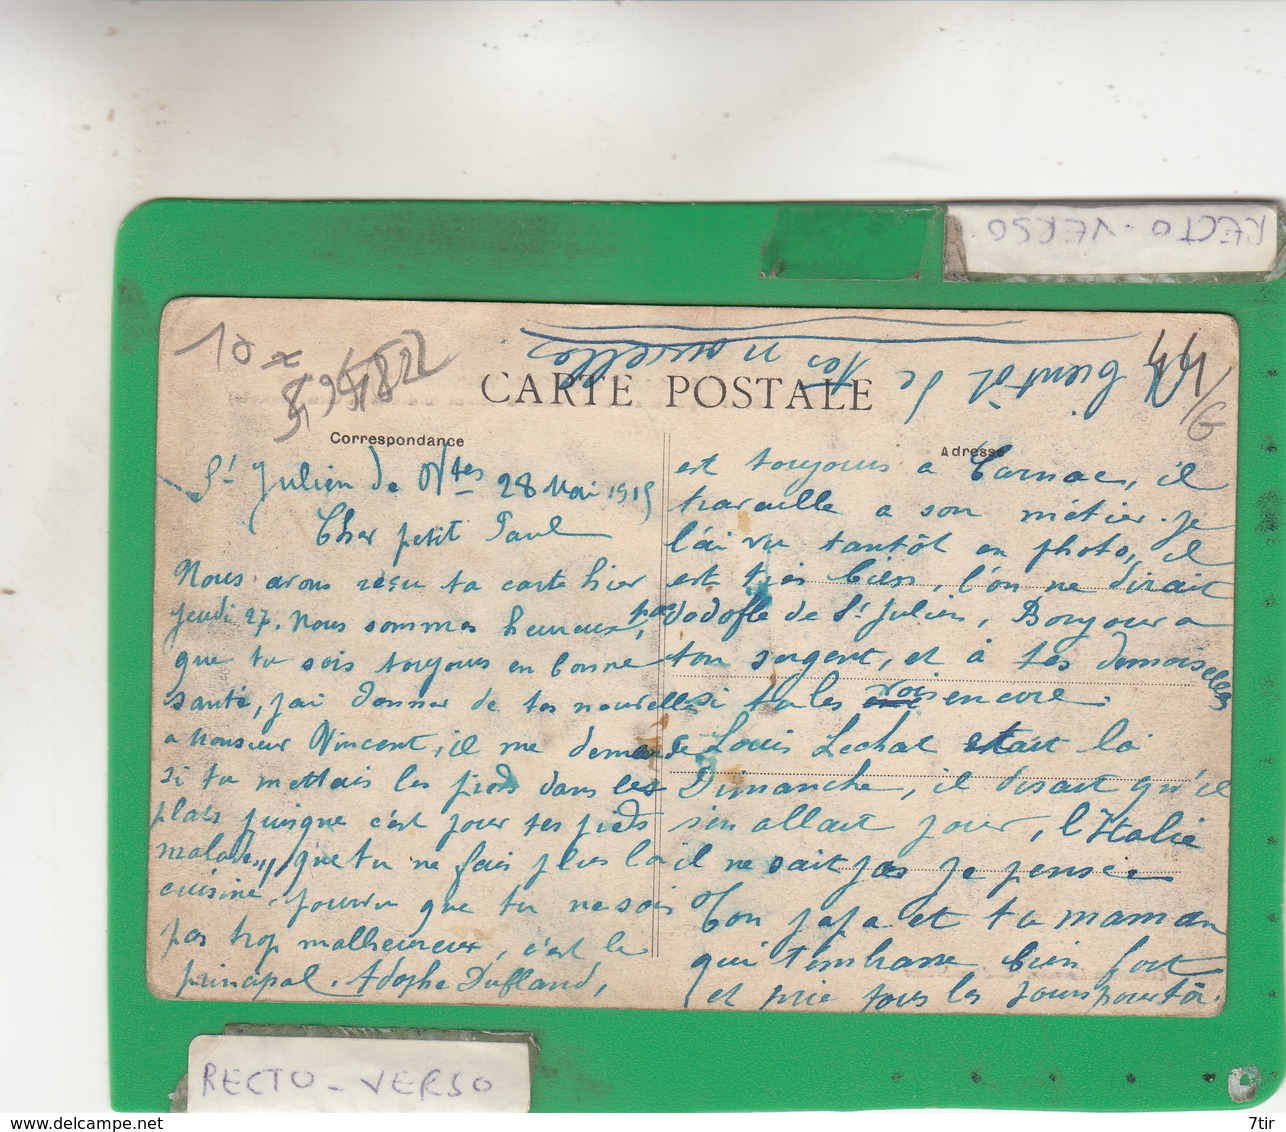 RECTO - VERSO
10 x
44/G
A bientôt de tes nouvelles
CARTE POSTALE
Correspondance
Adresse
St Julien de Ntes 28 Mai 1915
Cher petit Paul
Nous avons reçu ta carte hier
jeudi 27. Nous sommes heureux,
que tu sois toujours en bonne
santé, j'ai donner de tes nouvelles
a Monsieur Vincent, il me demande
si tu mettais les pieds dans les
plats puisque c'est pour tes pieds
malade,,, que tu ne fais plus la
cuisine, pourvu que tu ne sois
pas trop malheureux, c'est le
principal. Adophe Dufland,
est toujours a Carnac, il
travaille a son métier. Je
l'ai vu tantôt en photo,, il
est très bien, l'on ne dirait
pas dodofle de St Julien, Bonjour a
ton sergent, et à tes demoiselles
si tu les vois encore.
Louis Lechat était là
Dimanche, il disait qu'il
s'en allait pour, l'Italie
il ne sait pas je pense
Ton papa et ta maman
qui t'embrasse bien fort
et prie tous les jours pour toi.
RECTO - VERSO
www.delcampe.net
7tir